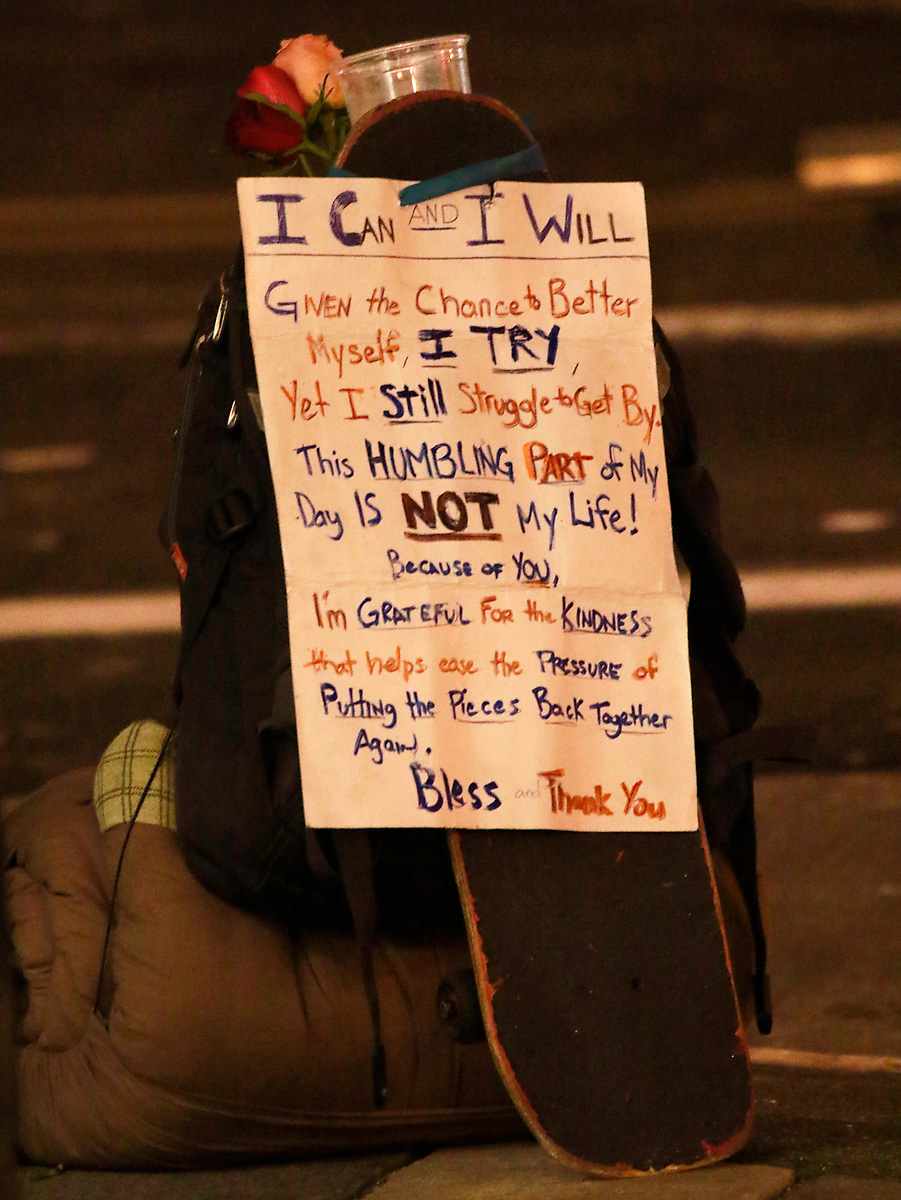 I CAN AND I WILL
GIVEN the Chance to Better
Myself, I TRY,
Yet I Still Struggle to Get By.
This HUMBLING PART of My
Day IS NOT My Life!
BECAUSE OF YOU,
I'm GRATEFUL FOR the KINDNESS
that helps ease the PRESSURE of
Putting the Pieces Back Together
Again.
Bless and Thank You